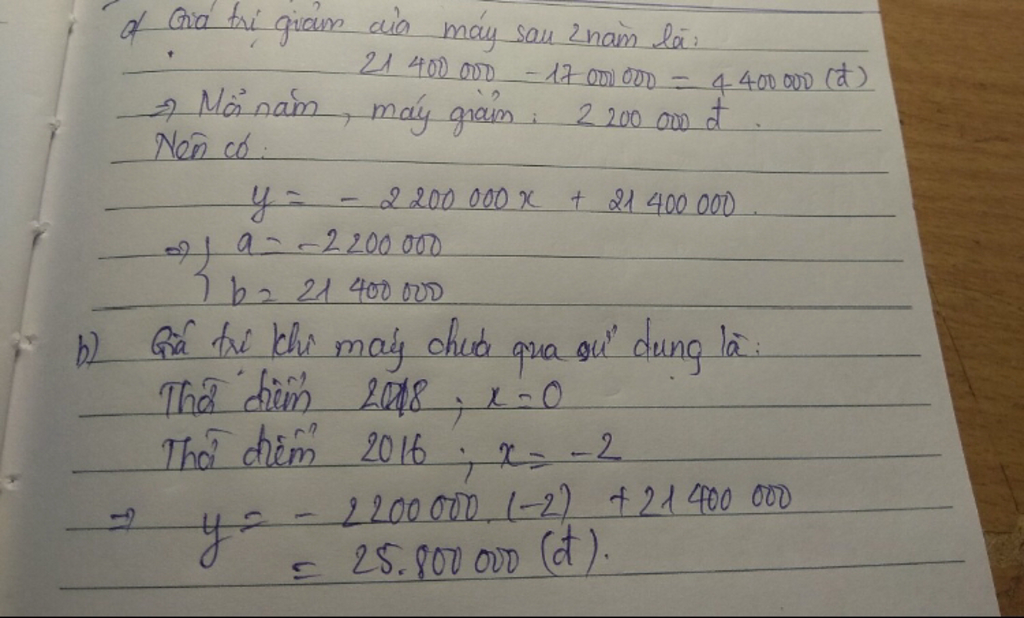 a) Giá trị giảm của máy sau 2 năm là:
21 400 000 - 17 000 000 = 4 400 000 (đ)
⇒ Mỗi năm, máy giảm: 2 200 000 đ.
Nên có:
y = - 2 200 000 x + 21 400 000.
⇒ { a = -2 200 000
b = 21 400 000
b) Giá trị khi máy chưa qua sử dụng là:
Thời điểm 2018 ; x = 0
Thời điểm 2016 ; x = -2
⇒ y = - 2 200 000 . (-2) + 21 400 000
= 25.800 000 (đ).